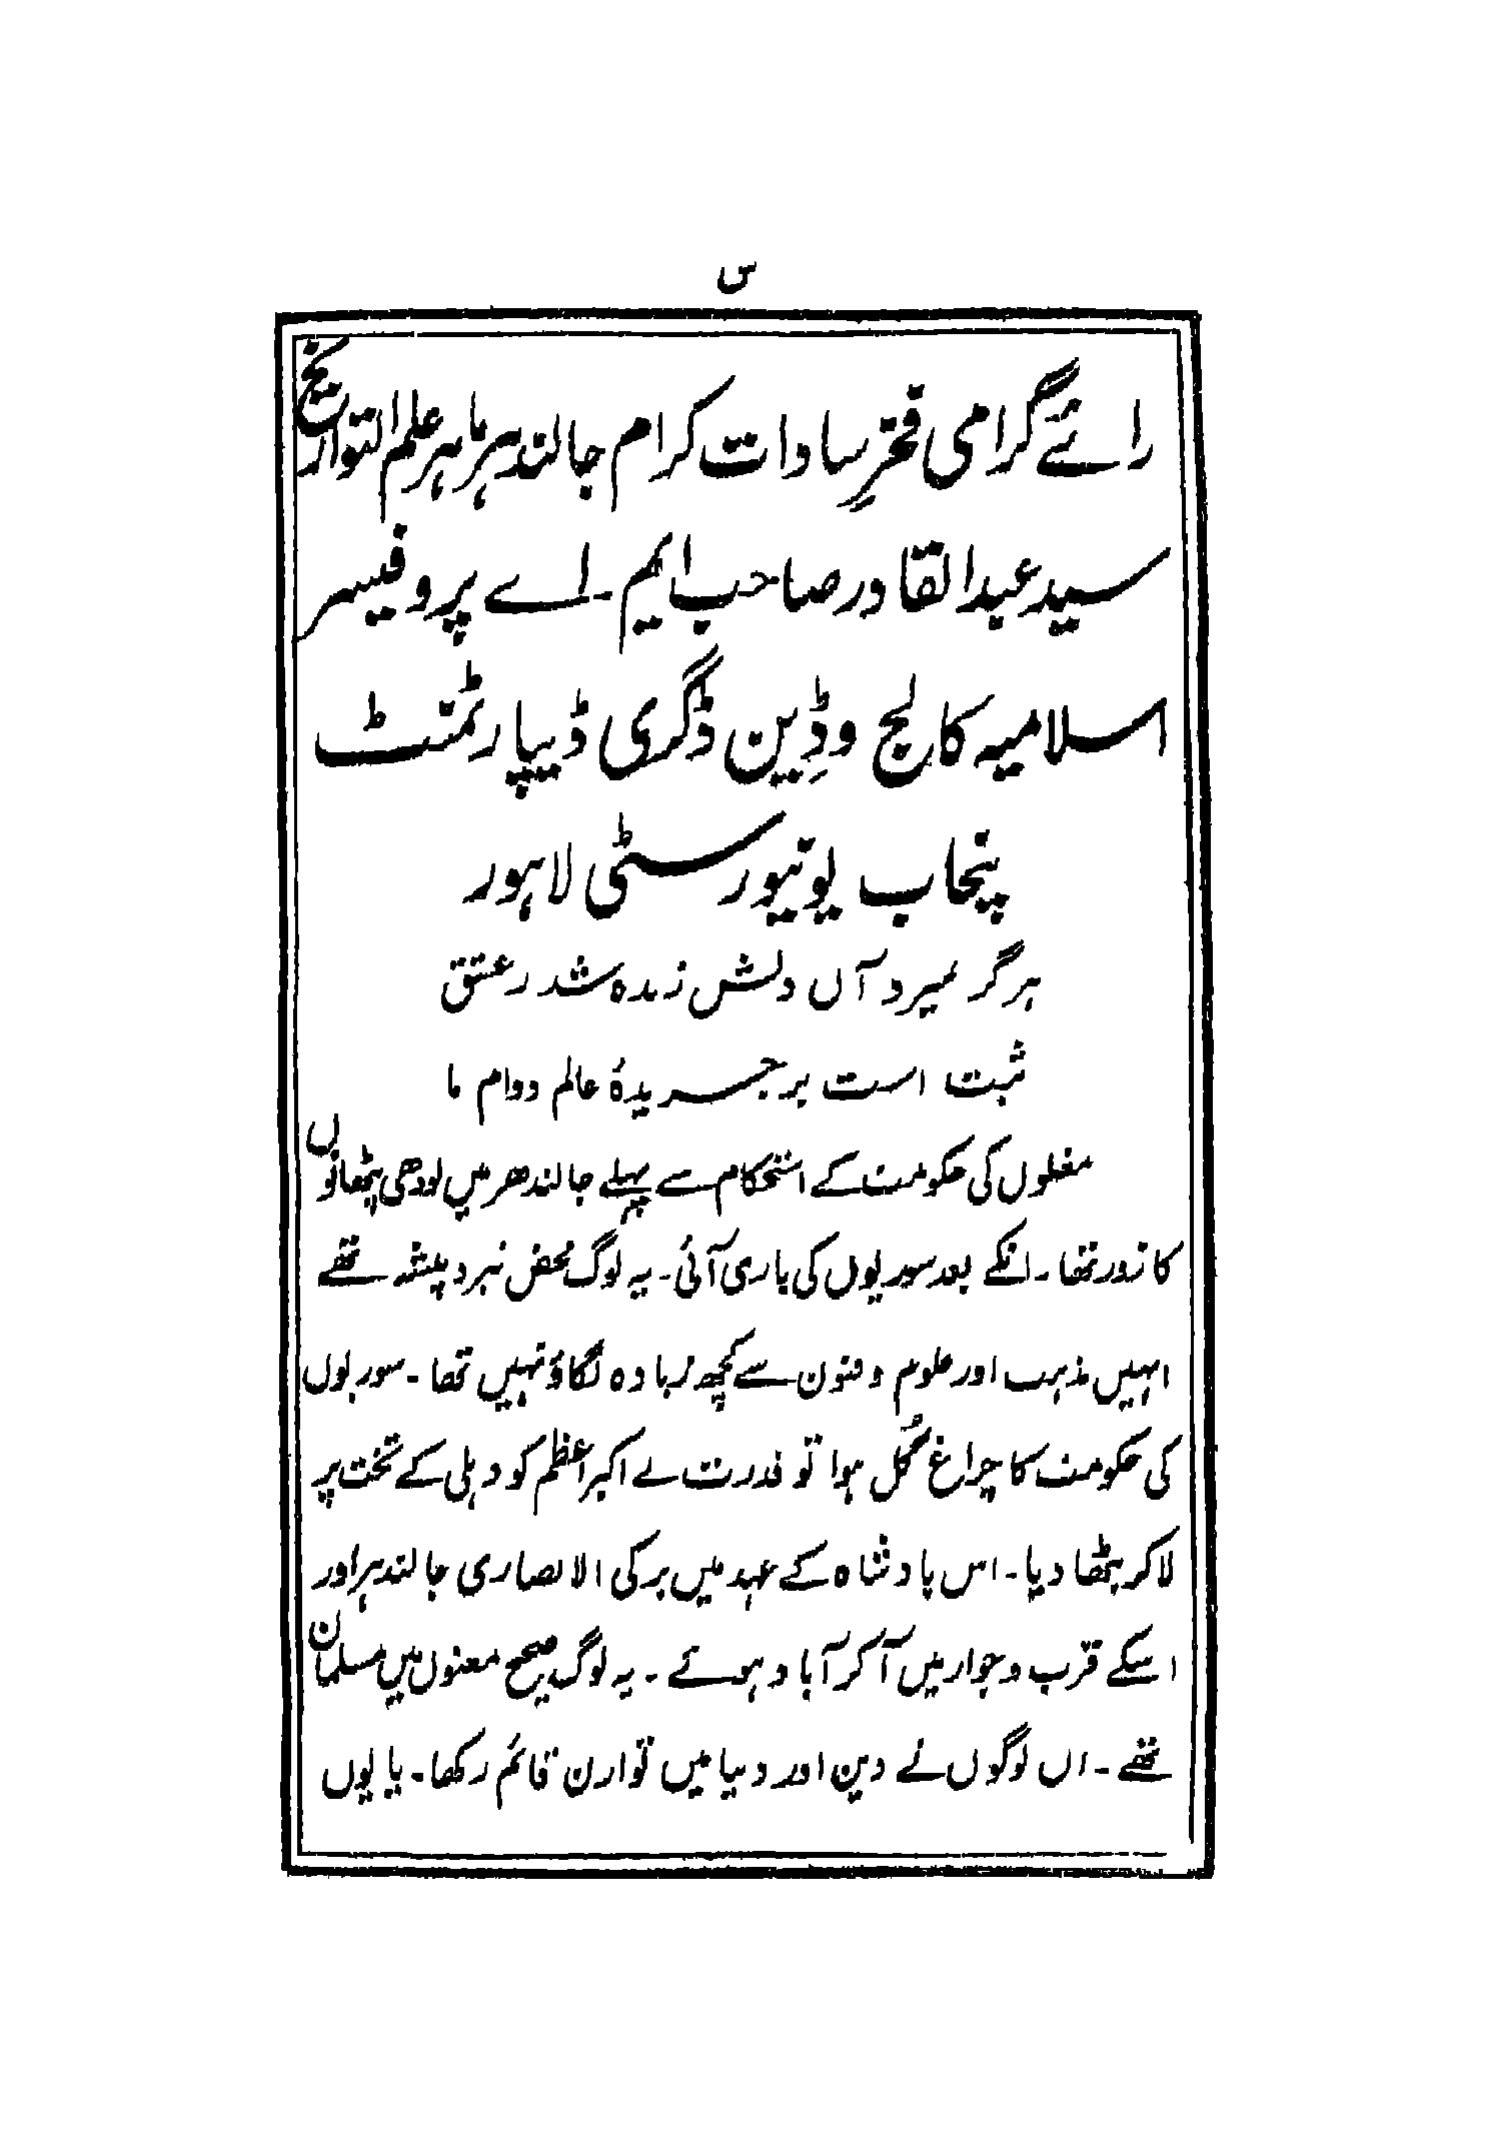 س
رائے گرامی فخرِ سادات کرام جالندہر ماہر علم التواریخ
سید عبدالقادر صاحب ایم۔اے پروفیسر
اسلامیہ کالج وڈِین ڈگری ڈیپارٹمنٹ
پنجاب یونیورسٹی لاہور
ہرگز نمیرد آں دلش زندہ شد ز عشق
ثبت است بر جریدۂ عالم دوام ما
مغلوں کی حکومت کے استحکام سے پہلے جالندھر میں لودھی پٹھانوں
کا زور تھا۔ انکے بعد سوریوں کی باری آئی۔ یہ لوگ محض نبرد پیشہ تھے
انہیں مذہب اور علوم و فنون سے کچھ زیادہ لگاؤ نہیں تھا۔ سوریوں
کی حکومت کا چراغ گُل ہوا تو قدرت نے اکبر اعظم کو دہلی کے تخت پر
لاکر بٹھا دیا۔ اس بادشاہ کے عہد میں برکی الانصاری جالندہر اور
اسکے قرب و جوار میں آکر آباد ہوئے۔ یہ لوگ صحیح معنوں میں مسلمان
تھے۔ ان لوگوں نے دین اور دنیا میں توازن قائم رکھا۔ یا یوں